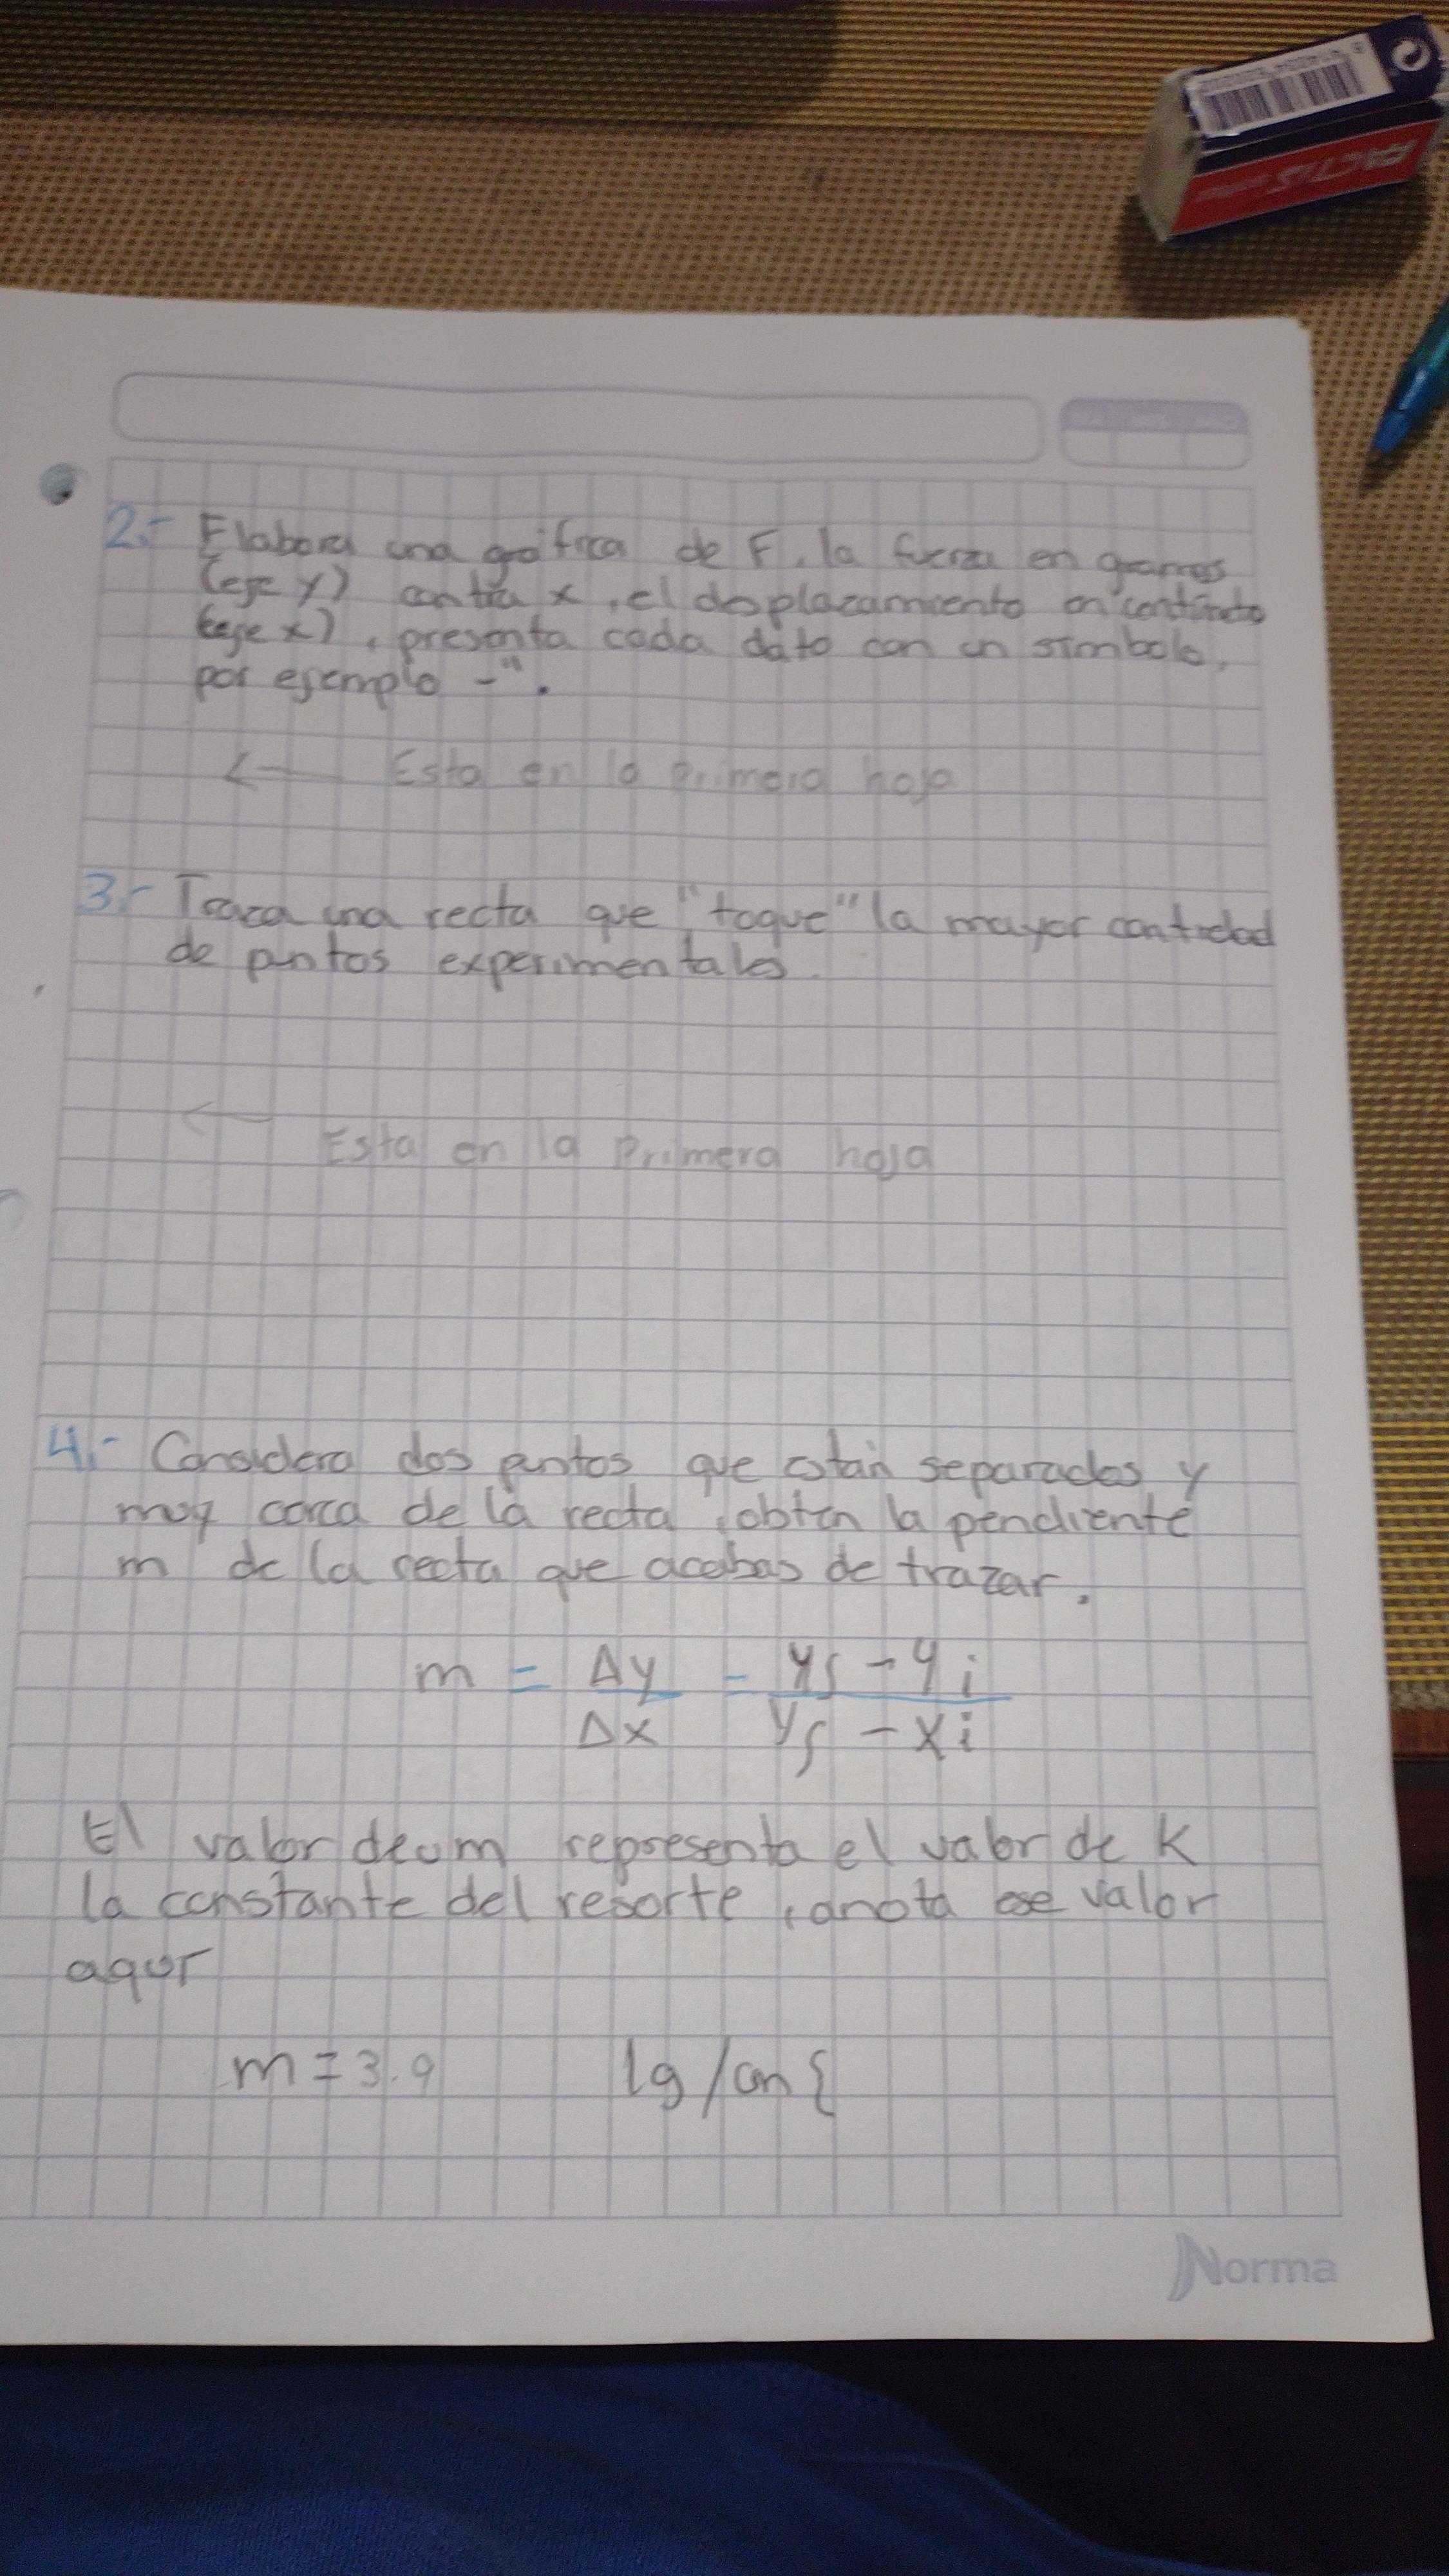 2.- Elabora una grafica de F, la fuerza en gramos
(eje y) contra x, el desplazamiento en
(eje x), presenta cada dato con un simbolo,
por ejemplo -".
← Esta en la primera hoja
3.- Traza una recta que "toque" la mayor cantidad
de puntos experimentales.
← Esta en la Primera hoja
4.- Considera dos puntos que están separados y
muy cerca de la recta, obten la pendiente
m de la recta que acabas de trazar.
m = Δy/Δx = yf - yi / yf - xi
El valor de m representa el valor de K
la constante del resorte, anota ese valor
aquí
m = 3.9 [g/cm]
Norma
FACTIS